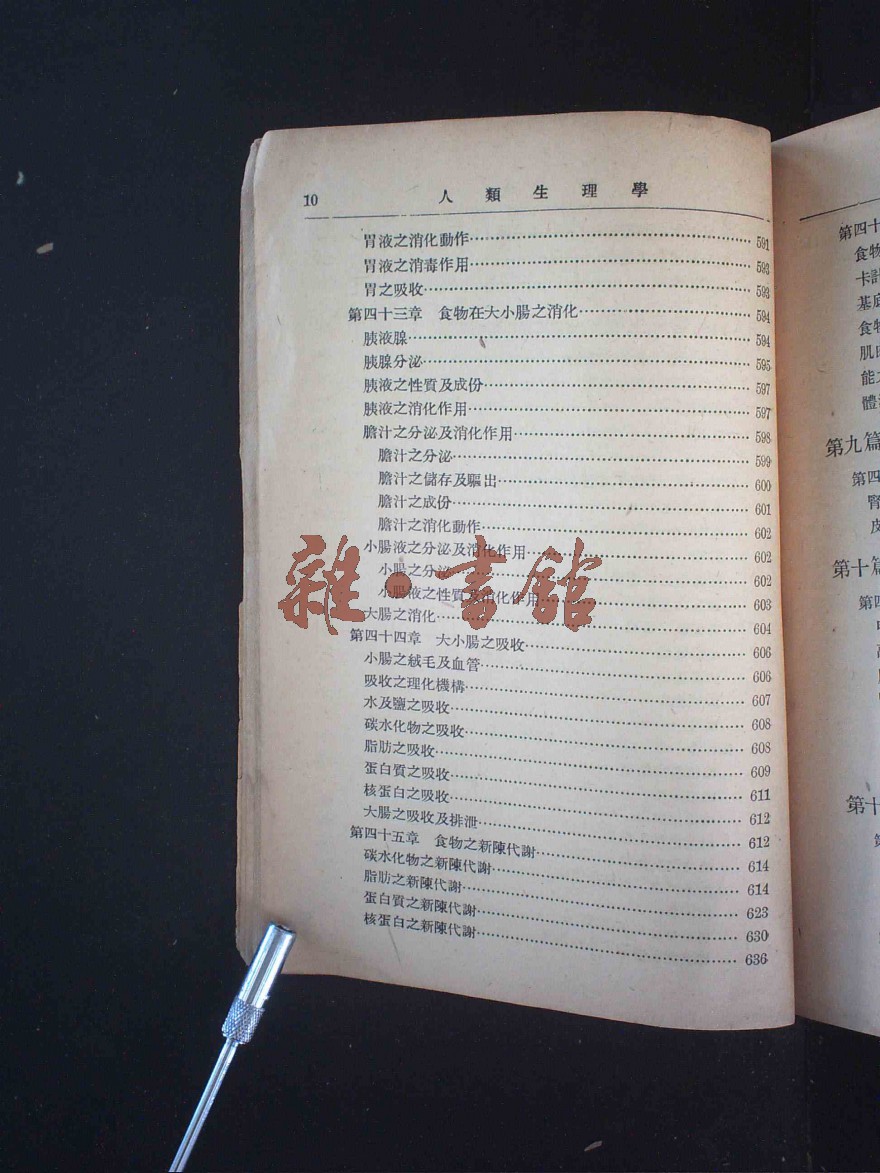 10 人類生理學
胃液之消化動作……591
胃液之消毒作用……593
胃之吸收……593
第四十三章 食物在大小腸之消化……594
胰液腺……594
胰腺分泌……595
胰液之性質及成份……597
胰液之消化作用……597
膽汁之分泌及消化作用……598
膽汁之分泌……599
膽汁之儲存及驅出……600
膽汁之成份……601
膽汁之消化動作……602
小腸液之分泌及消化作用……602
小腸之分泌……602
小腸液之性質及消化作用……603
大腸之消化……604
第四十四章 大小腸之吸收……606
小腸之絨毛及血管……606
吸收之理化機構……607
水及鹽之吸收……608
碳水化物之吸收……608
脂肪之吸收……609
蛋白質之吸收……611
核蛋白之吸收……612
大腸之吸收及排泄……612
第四十五章 食物之新陳代謝……614
碳水化物之新陳代謝……614
脂肪之新陳代謝……623
蛋白質之新陳代謝……630
核蛋白之新陳代謝……636
雜·書館
第四十
食物
卡計
基底
食物
肌肉
能之
體
第九篇
第四
腎
皮
第十篇
第四
第十